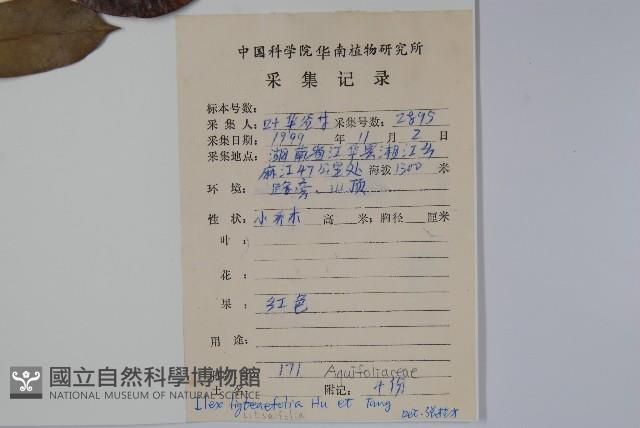 中国科学院华南植物研究所
采集记录
标本号数:
采集人: 叶华谷 采集号数: 2895
采集日期: 1999 年 11 月 2 日
采集地点: 湖南省江华县湘江乡
麻江47公里处 海拔 1300 米
环境: 路旁、山顶
性状: 小乔木 高 米; 胸径 厘米
叶:
花:
果: 红色
用途:
171 Aquifoliaceae
土名 附记: 十份
Ilex Hu et Tang
litseaefolia Det.
國立自然科學博物館
NATIONAL MUSEUM OF NATURAL SCIENCE